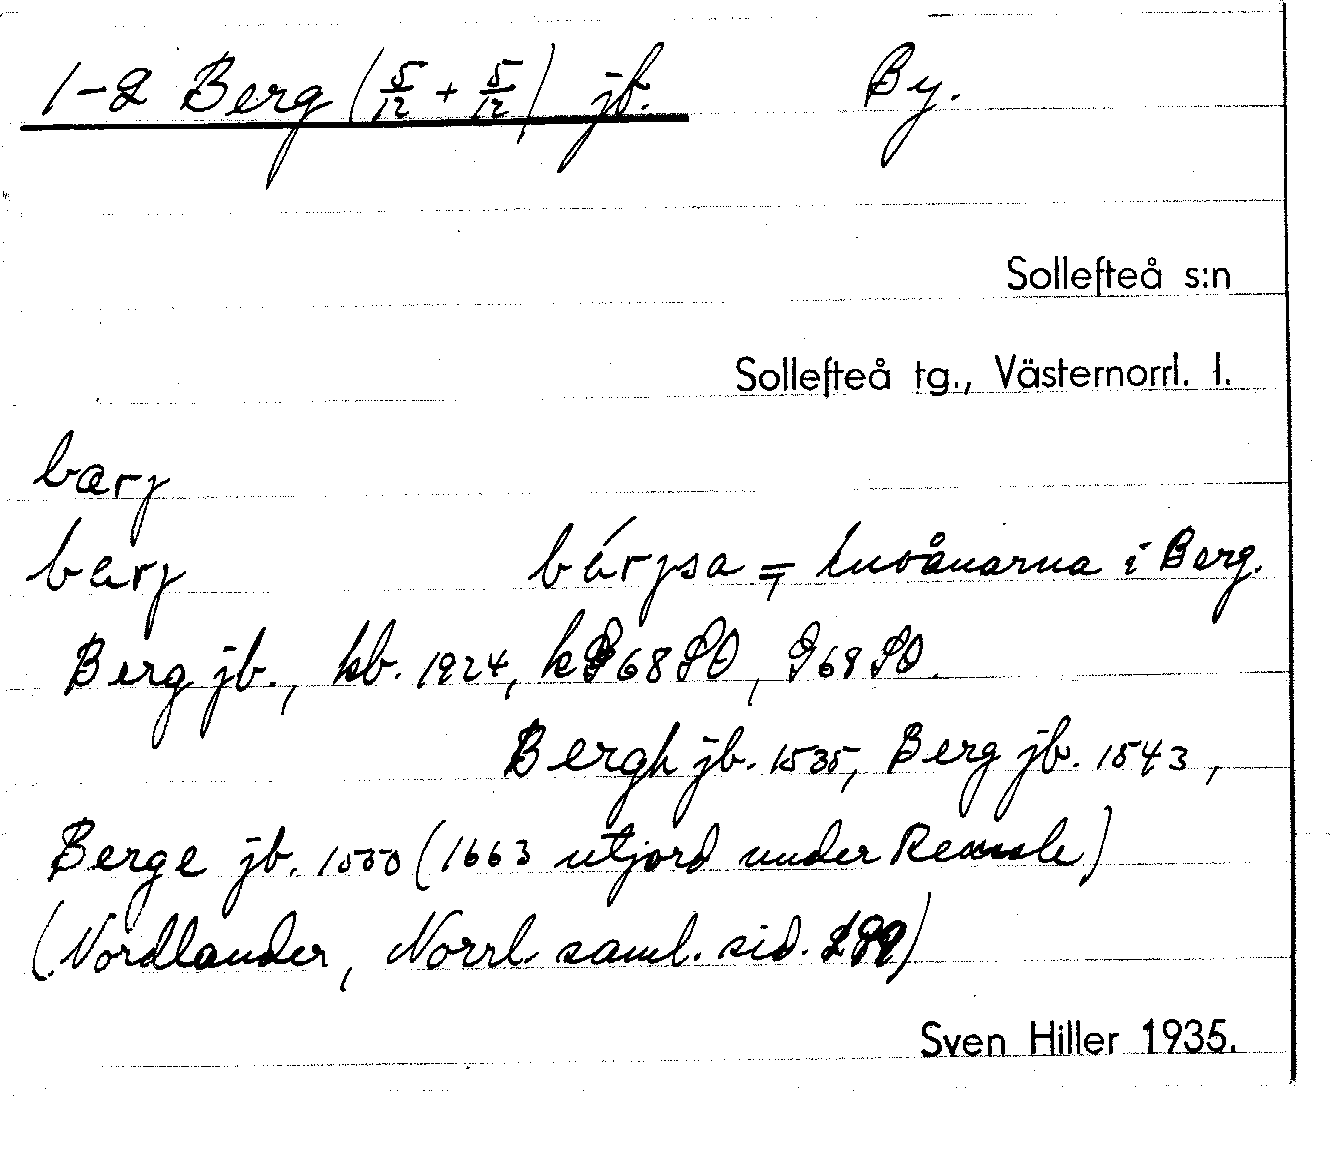 1-2 Berg (5/12 + 5/12) jb. By.
Sollefteå s:n
Sollefteå tg., Västernorrl. l.
bærj
bærj bǽrjsa = Invånarna i Berg.
Berg jb., kb. 1924, k G 68 SO, G 68 SO.
Bergh jb. 1535, Berg jb. 1543,
Berge jb. 1550 (1663 utjord under Remsle)
(Nordlander, Norrl. saml. sid.
Sven Hiller 1935.